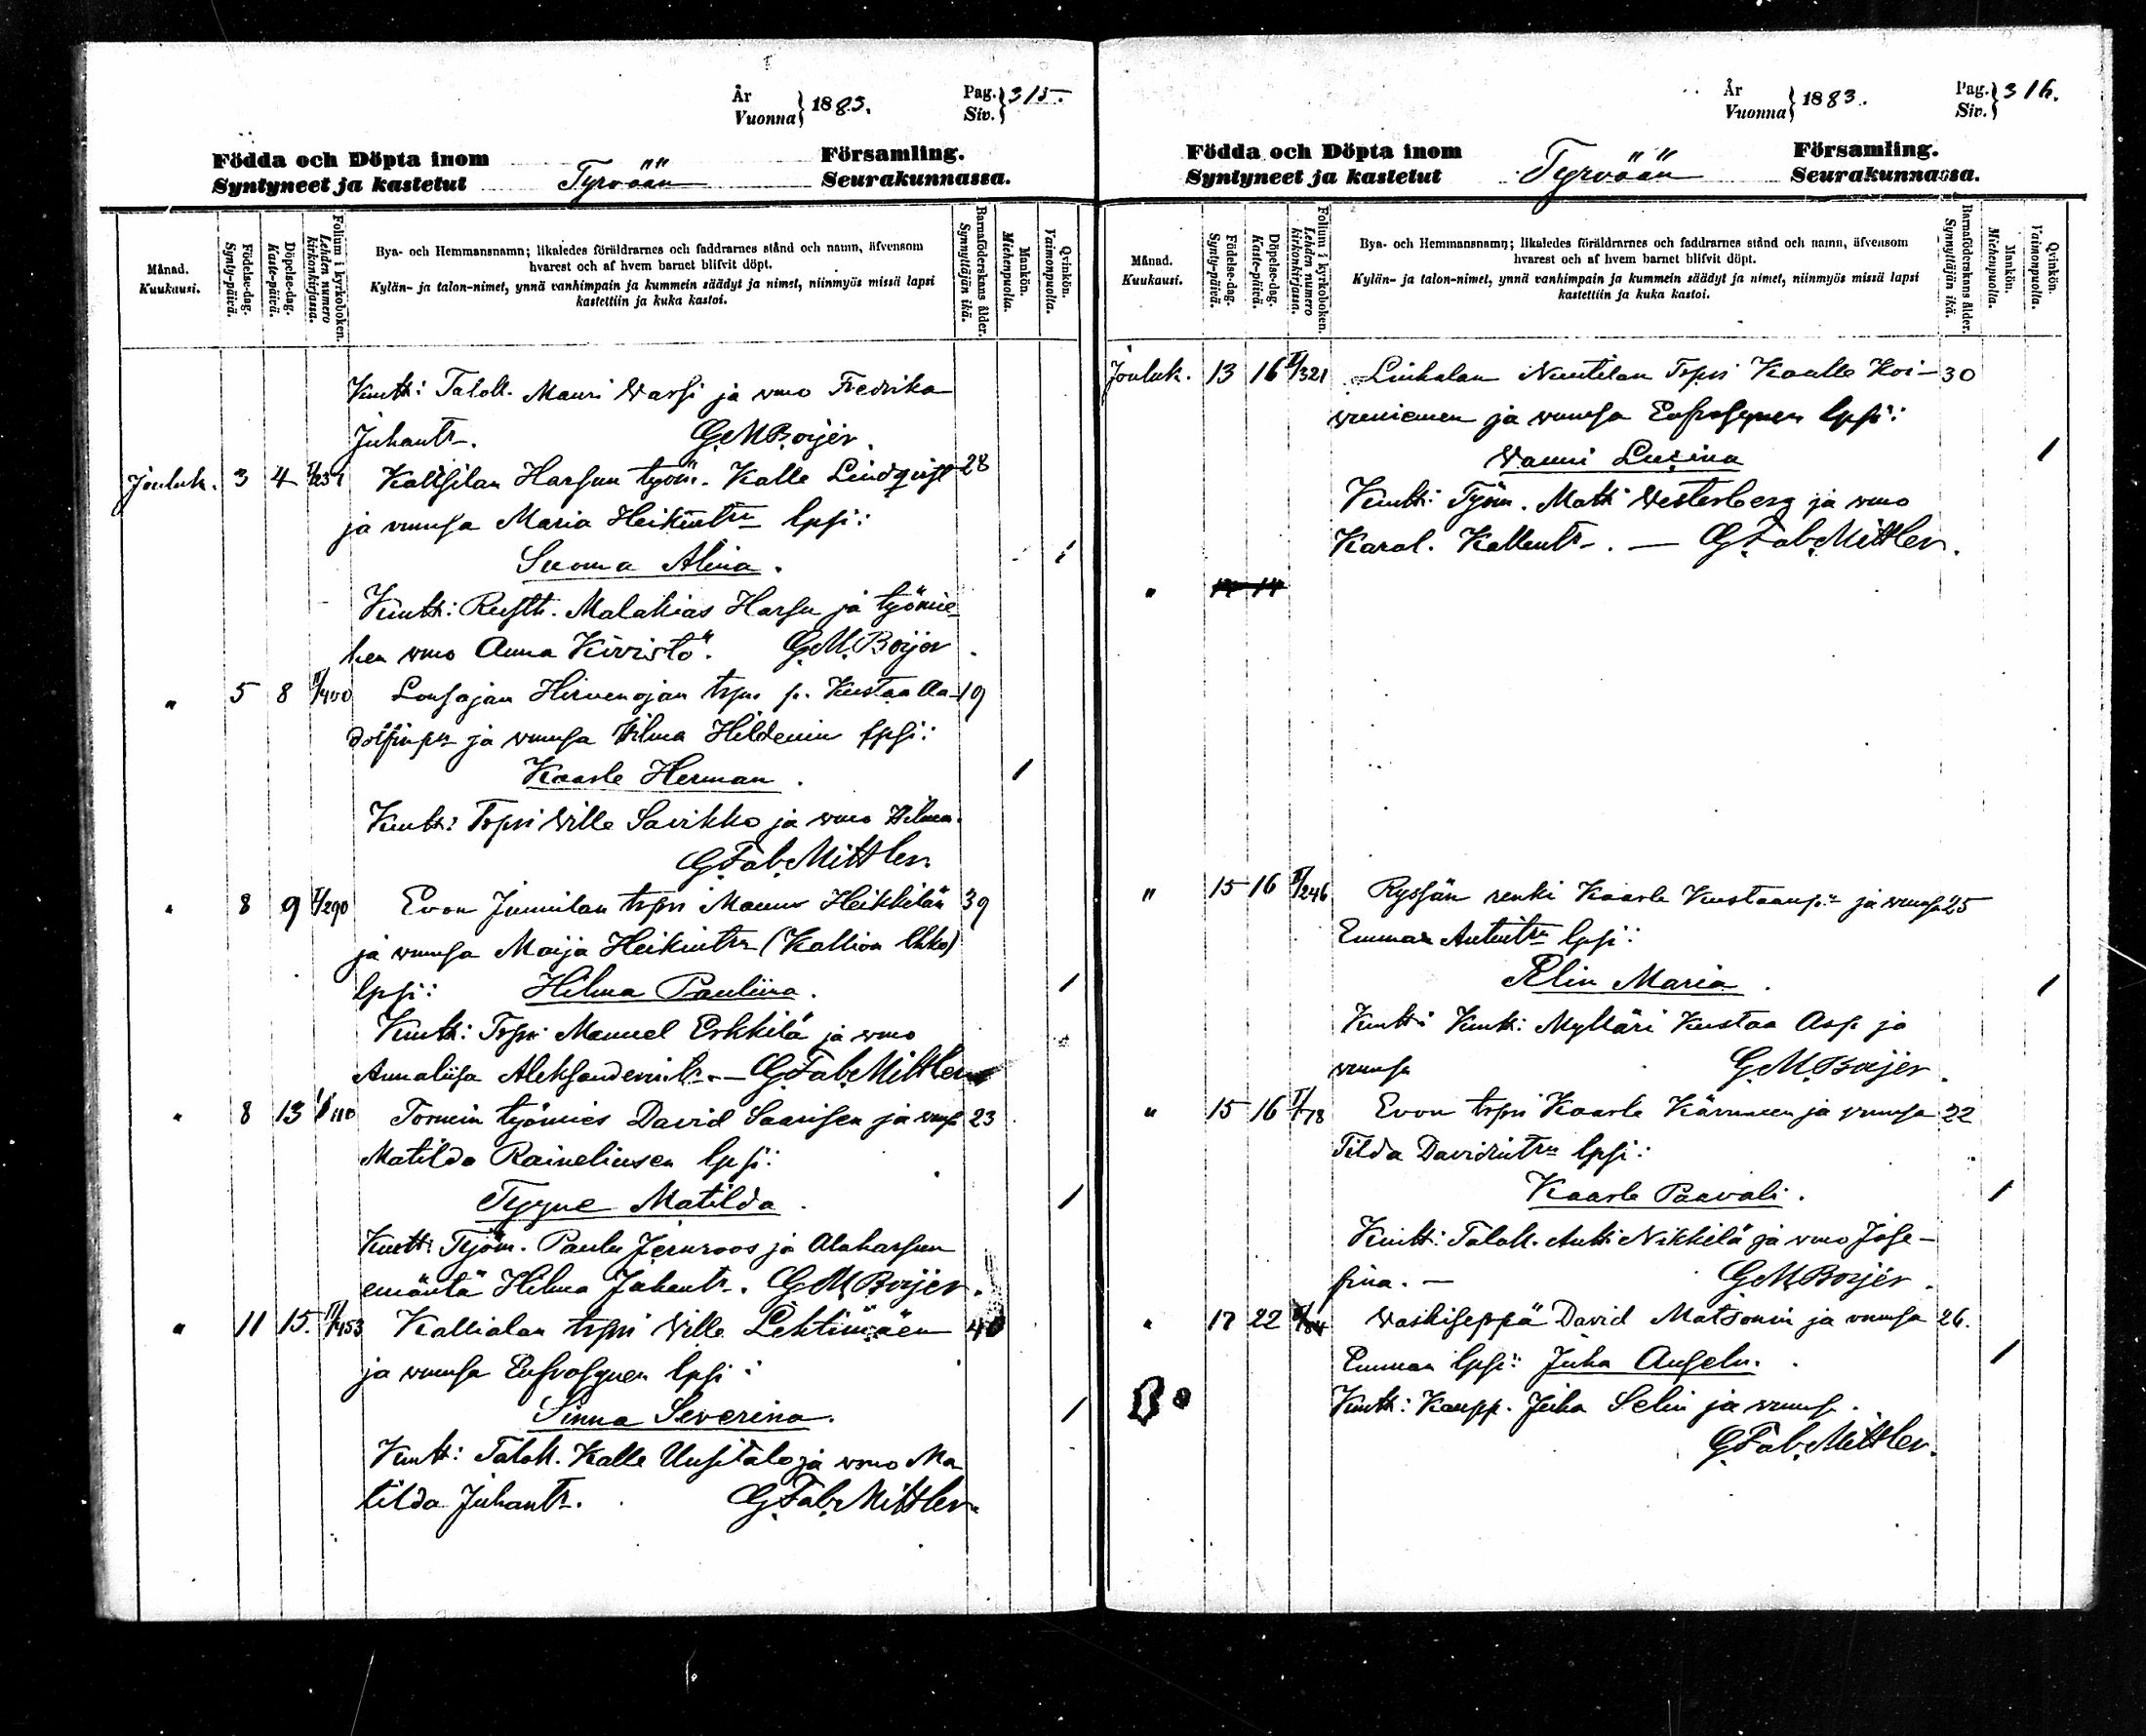 År
Vuonna } 1883.
Pag.
Siv. } 315.
Födda och Döpta inom
Syntyneet ja kastetut
Tyrvään
Församling.
Seurakunnassa.
Månad.
Kuukausi.
Födelse-dag.
Synty-päivä.
Döpelse-dag.
Kaste-päivä.
Folium i kyrkoboken.
Lehden numero kirkonkirjassa.
Bya- och Hemmansnamn; likaledes föräldrarnes och faddrarnes stånd och namn, äfvensom
hvarest och af hvem barnet blifvit döpt.
Kylän- ja talon-nimet, ynnä vanhimpain ja kummein säädyt ja nimet, niinmyös missä lapsi
kastettiin ja kuka kastoi.
Barnaföderskans ålder.
Synnyttäjän ikä.
Mankön.
Miehenpuolta.
Qvinkön.
Vaimonpuolta.
Kumit: Taloll. Mauri Warsi ja wmo Fredrika
Juhantr. G.M.Boijer.
Jouluk. 3 4 Harsun työm. Kalle Lindqvist 28
ja wmnsa Maria Heikintr lpsi:
Suoma Alina. 1
Kumit: Rusth. Malakias Harsu ja työmie-
hen wmo Anna Kivistö. G.M.Boijer.
" 5 8 II/400 Hirvenojan p. Kustaa Aa- 19
dolfinp ja wmnsa Vilma Hildenin lpsi:
Kaarle Herman. 1
Kumit: Trpri Wille Savikko ja wmo
G.Fab.Mittler.
" 8 9 I/290 Evon Junnilan trpri Manu Heikkilän 39
ja wmnsa Maija Heikintr (Kallion lhko)
lpsi: Hilma Pauliina. 1
Kumit: Trpri Manuel Erkkilä ja wmo
Annaliisa Aleksanderintr. — G.Fab.Mittler
" 8 13 110 Tormin työmies David Saarisen ja wmsa 23
Matilda Raineliusen lpsi:
Tyyne Matilda. 1
Kumit: Työm. Paulu Jernroos ja Alaharsun
emäntä Hilma Juhantr. G.M.Boijer.
" 11 15. II/453 Kallialan trpri Wille Lehtimäen 40
ja wmnsa Eufrosynen lpsi:
Sinna Severina. 1
Kumit: Taloll. Kalle Uusitalo ja wmo Ma-
tilda Juhantr. G.Fab.Mittler.
År
Vuonna } 1883.
Pag.
Siv. } 316.
Födda och Döpta inom
Syntyneet ja kastetut
Tyrvään
Församling.
Seurakunnassa.
Månad.
Kuukausi.
Födelse-dag.
Synty-päivä.
Döpelse-dag.
Kaste-päivä.
Folium i kyrkoboken.
Lehden numero kirkonkirjassa.
Bya- och Hemmansnamn; likaledes föräldrarnes och faddrarnes stånd och namn, äfvensom
hvarest och af hvem barnet blifvit döpt.
Kylän- ja talon-nimet, ynnä vanhimpain ja kummein säädyt ja nimet, niinmyös missä lapsi
kastettiin ja kuka kastoi.
Barnaföderskans ålder.
Synnyttäjän ikä.
Mankön.
Miehenpuolta.
Qvinkön.
Vaimonpuolta.
Jouluk. 13 16 II/321 Liuhalan Nuutilan Trpri Kaalle Koi- 30
wuniemen ja wmnsa Eufrosynen lpsi:
Wanni Lusina 1
Kumit: Työm. Matti Westerberg ja wmo
Karol. Kallentr. — G.Fab.Mittler.
"
" 15 16 II/246 Ryssän renki Kaarle Kustaanp ja wmnsa 25
Emman Antintr lpsi:
Elin Maria. 1
Kumit: Mylläri Kustaa Asp ja
wmnsa G.M.Boijer.
" 15 16 I/78 Evon trpri Kaarle Kärmeen ja wmnsa 22
Tilda Davidintr lpsi:
Kaarle Paavali. 1
Kumit: Taloll. Antti Nikkilä ja wmo Jose-
fina. — G.M.Boijer.
" 17 22 Waskiseppä David Matsonin ja wmnsa 26.
Emman lpsi: Juha Anselm. 1
Kumit: Kaupp. Juha Selin ja wmnsa.
G.Fab.Mittler.